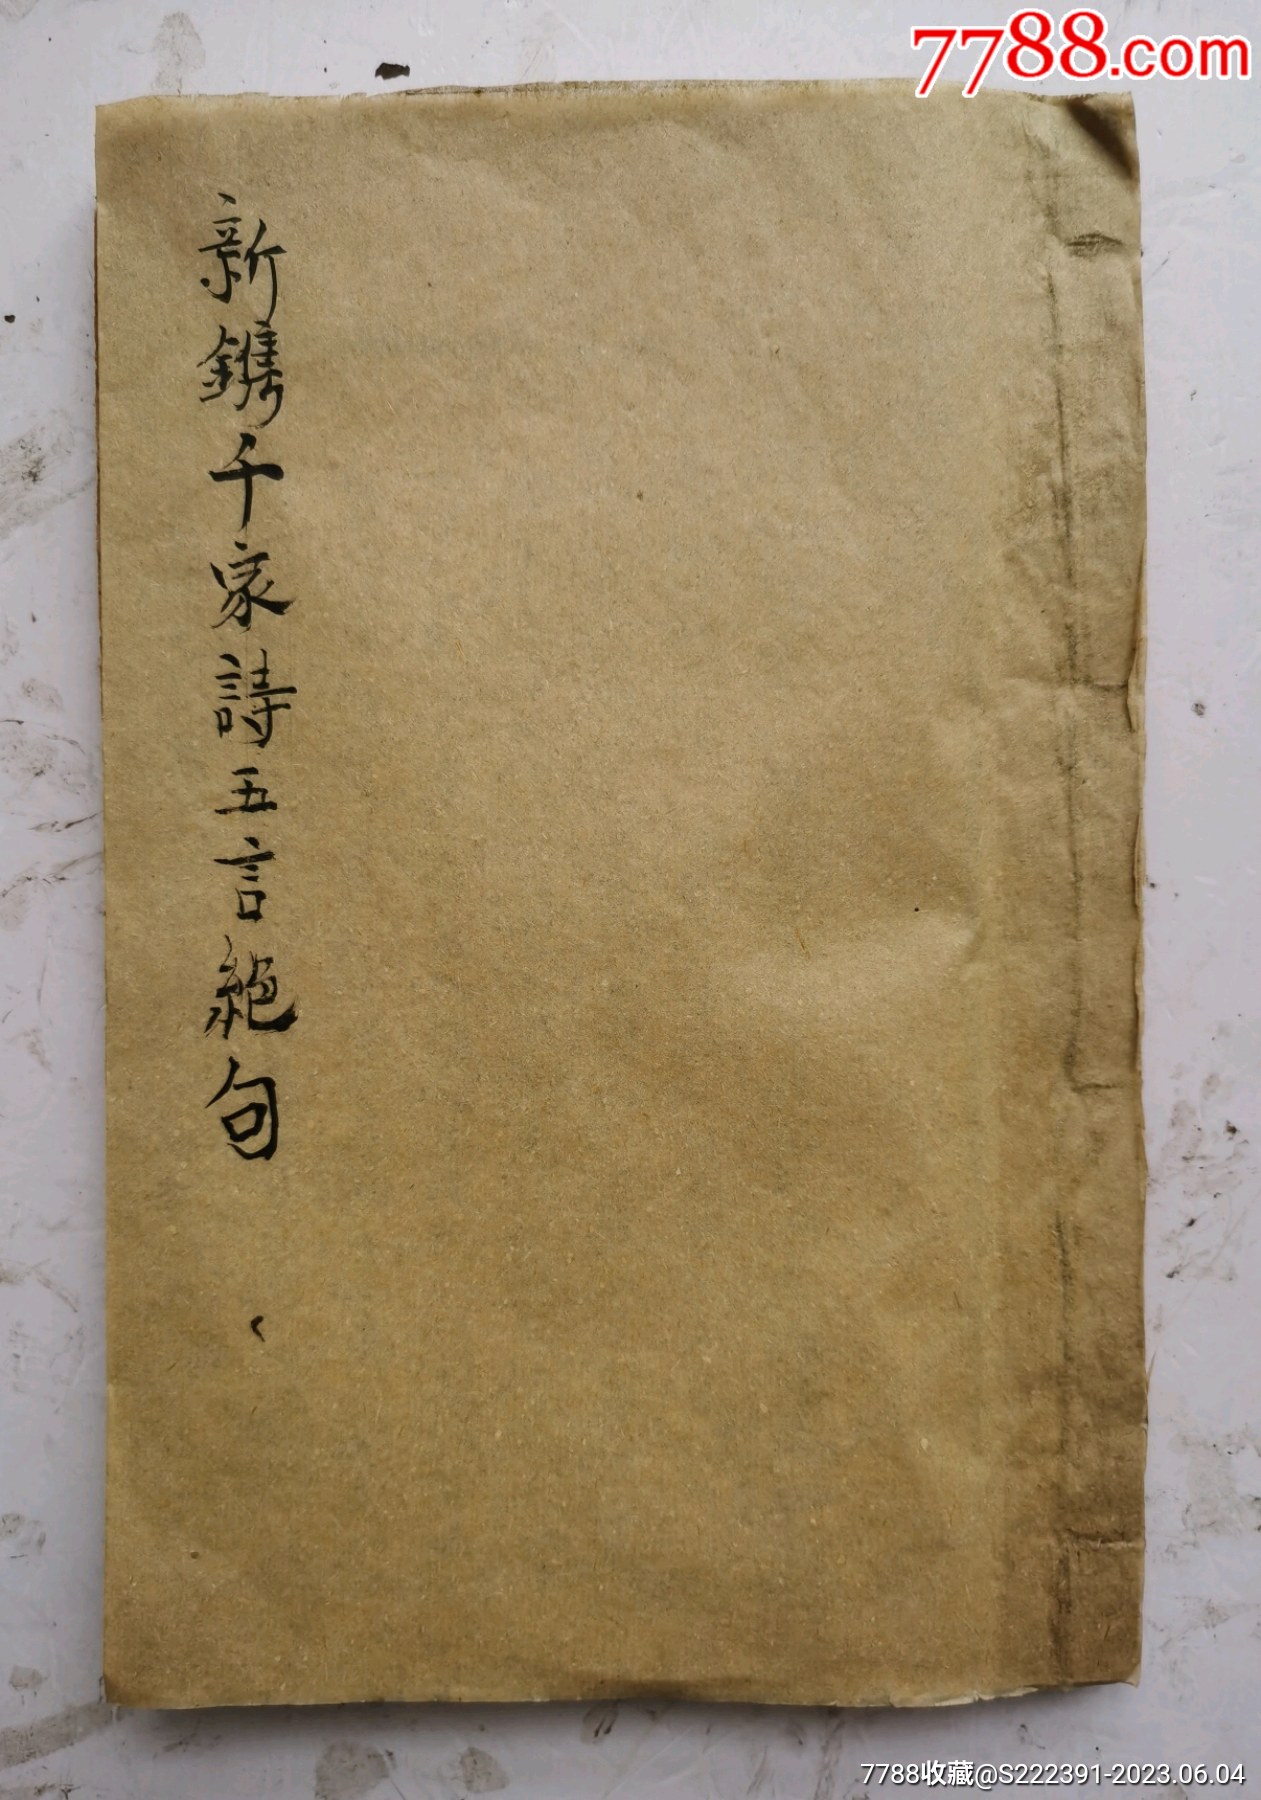 7788.com
新鐫千家詩五言絕句
7788收藏@S222391-2023.06.04